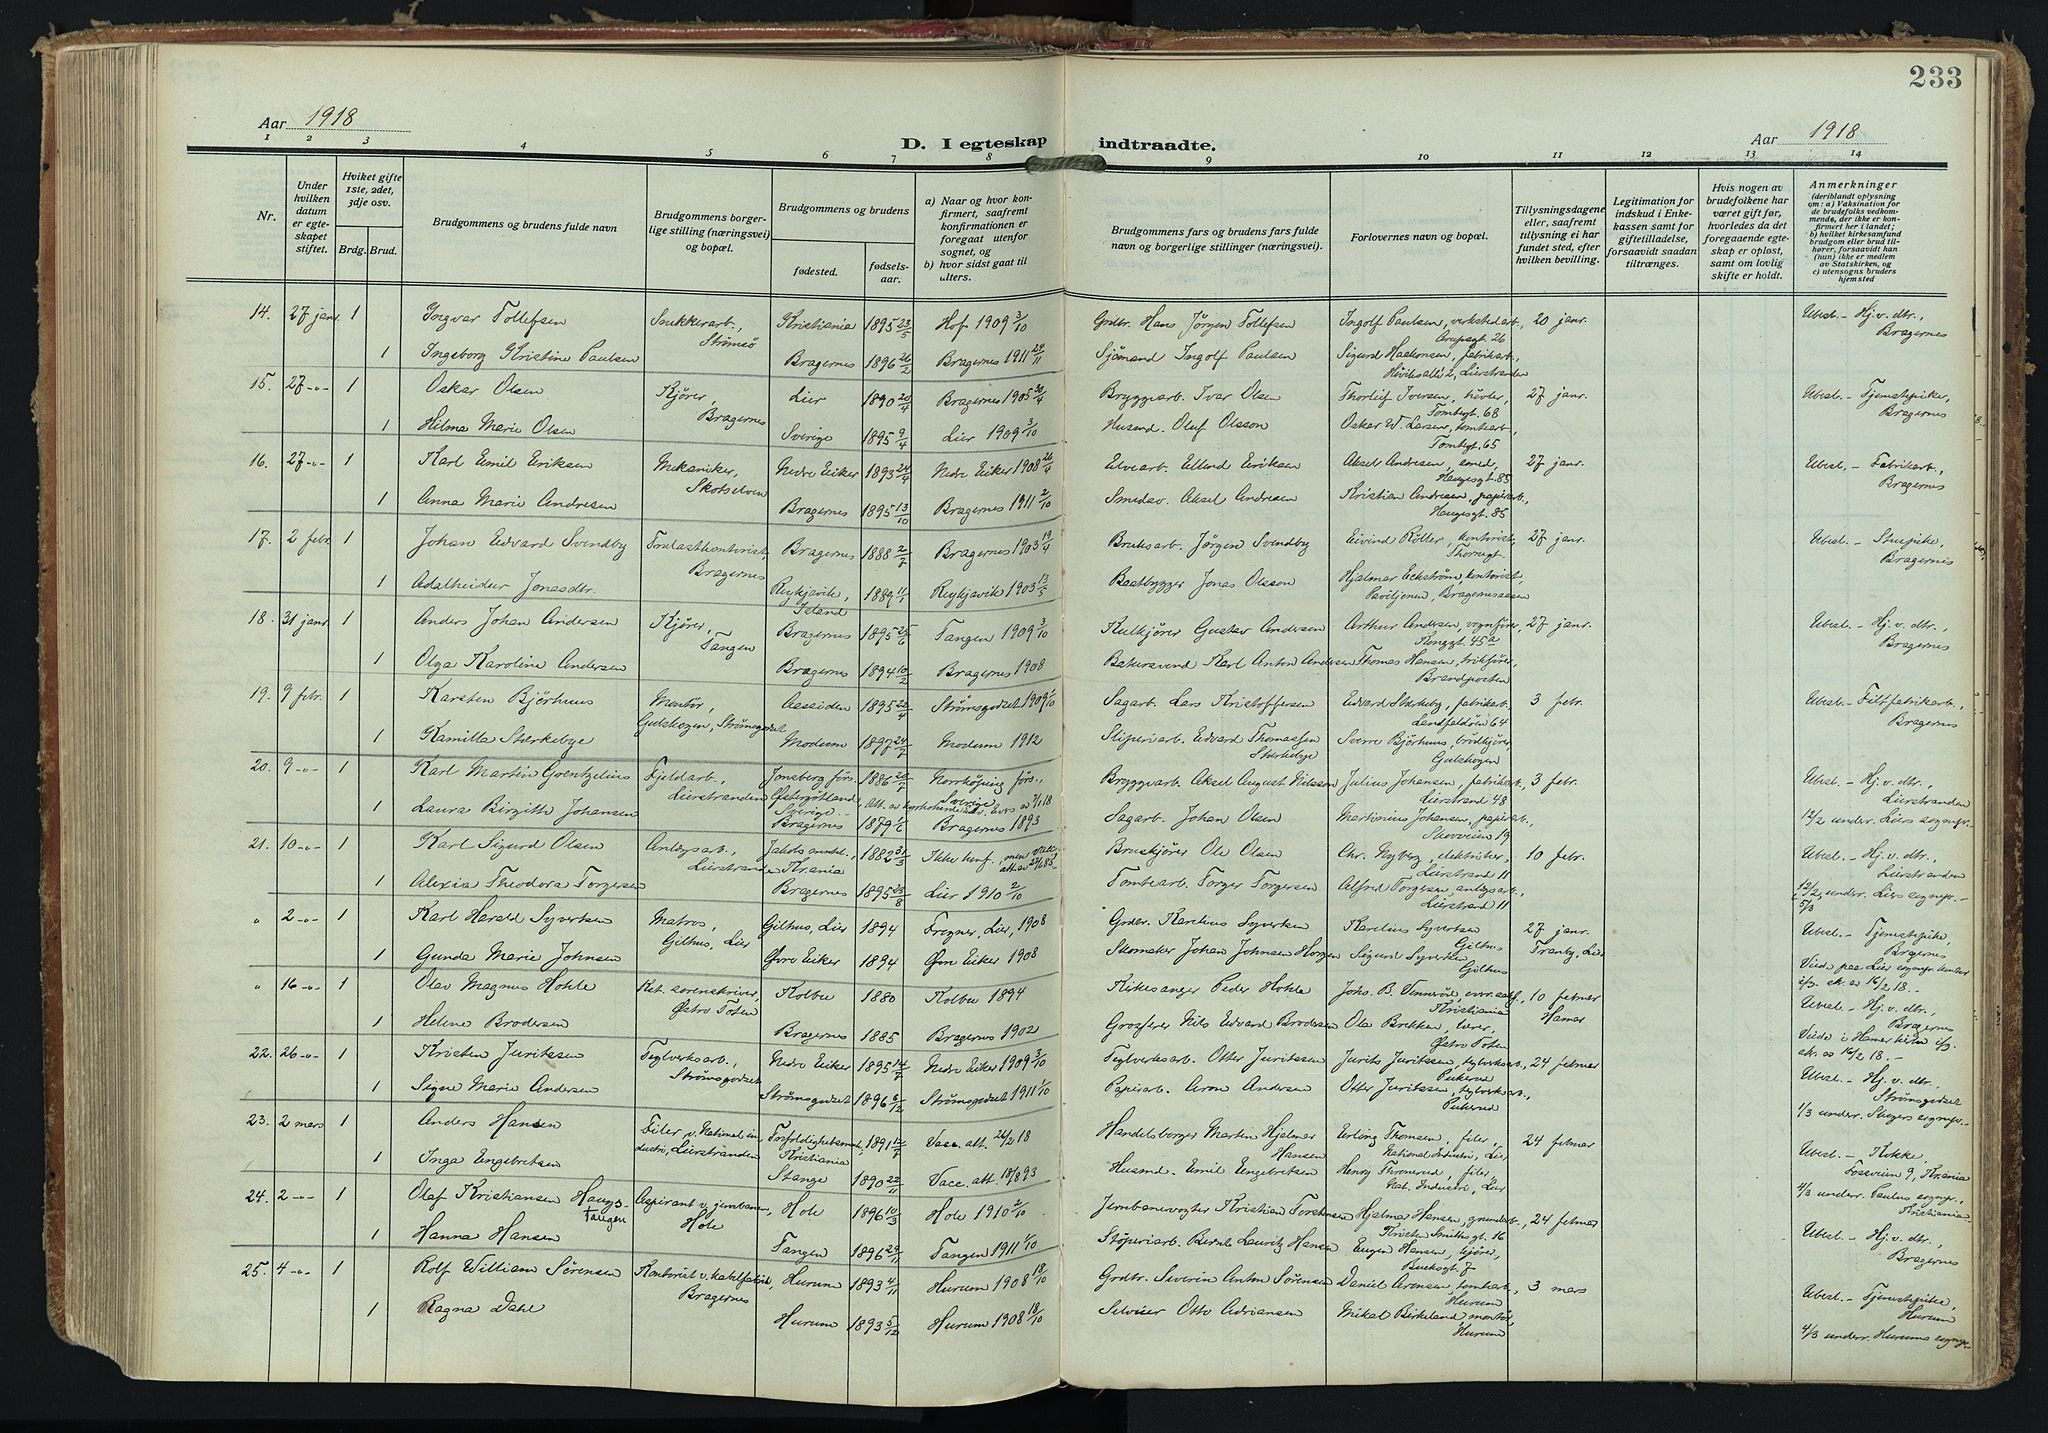 233
Aar 1918
D. I egteskap indtraadte.
Aar 1918
1 2 3 4 5 6 7 8 9 10 11 12 13 14
Nr.
Under hvilken datum er egteskapet stiftet.
Hviket gifte 1ste, 2det, 3dje osv.
Brdg. Brud.
Brudgommens og brudens fulde navn
Brudgommens borgerlige stilling (næringsvei) og bopæl.
Brudgommens og brudens
fødested.
fødselsaar.
a) Naar og hvor konfirmert, saafremt konfirmationen er foregaat utenfor sognet, og
b) hvor sidst gaat til alters.
Brudgommens fars og brudens fars fulde navn og borgerlige stillinger (næringsvei).
Forlovernes navn og bopæl.
Tillysningsdagene eller, saafremt tillysning ei har fundet sted, efter hvilken bevilling.
Legitimation for indskud i Enkekassen samt for giftetilladelse, forsaavidt saadan tiltrænges.
Hvis nogen av brudefolkene har været gift før, hvorledes da det foregaaende egteskap er opløst, samt om lovlig skifte er holdt.
Anmerkninger (deriblandt oplysning om: a) Vaksination for de brudefolks vedkommende, der ikke er konfirmert her i landet; b) hvilket kirkesamfund brudgom eller brud tilhører, forsaavidt han (hun) ikke er medlem av Statskirken, og c) utensogns bruders hjemsted
14. 27 janr. 1 Ingvar Tollefsen Snikkerarb., Strømsø Kristiania 1895 23/5 Hof 1909 3/10 Grdbr. Hans Jörgen Tollefsen Ingolf Paulsen, verkstedarb., Arupsgt. 26 20 janr. Ubesl. - Hj. v. dtr., Bragernes
1 Ingeborg Kristine Paulsen Bragernes 1896 26/2 Bragernes 1911 24/11 Sjömand Ingolf Paulsen Sigurd Haakonsen, fabrikarb., Høviksallé 2, Lierstranden
15. 27 -"- 1 Oskar Olsen Kjører, Bragernes Lier 1890 20/4 Bragernes 1905 30/4 Bryggearb. Ivar Olsen Thorleif Iversen, høvler, Tomtegt. 68 27 janr. Ubesl. - Tjenestepike, Bragernes
1 Helma Marie Olsen Sverige 1895 9/4 Lier 1909 3/10 Husmd. Oluf Olsson Oskar W. Larsen, tomtearb., Tomtegt. 65
16. 27 -"- 1 Karl Emil Eriksen Mekaniker, Skotselven Nedre Eiker 1893 24/4 Nedre Eiker 1908 26/4 Elvearb. Ellend Eriksen Aksel Andresen, smed, Haugesgt. 85 27 janr. Ubesl. - Fabrikarb., Bragernes
1 Anna Marie Andresen Bragernes 1895 13/10 Bragernes 1911 2/10 Smedsv. Aksel Andresen Kristian Andresen, papirarb., Haugesgt. 85
17. 2 febr. 1 Johan Edvard Svendby Trelastkontorist, Bragernes Bragernes 1888 2/7 Bragernes 1903 19/4 Bruksarb. Jørgen Svendby Eivind Röller, kontorist, Thorngt. 27 janr. Ubesl. - Stuepike, Bragernes
1 Adalheidur Jonasdtr. Reykjavik, Island 1889 11/1 Reykjavik 1903 13/5 Baatbygger Jonas Olsson Hjalmar Eckström, kontorist, Paviljonen, Bragernesaasen
18. 31 janr. 1 Anders Johan Andersen Kjører, Tangen Bragernes 1895 25/6 Tangen 1909 3/10 Kulkjører Gustav Andersen Arthur Andersen, vognfører, Konggt. 45a 27 janr. Ubesl. - Hj. v. dtr., Bragernes
1 Olga Karoline Andersen Bragernes 1894 10/2 Bragernes 1908 Bakersvend Karl Anton Andersen Thomas Hansen, trikfører, Brandposten
19. 9 febr. 1 Karsten Bjørhuus Montør, Gulskogen, Strømsgodset Aasiden 1895 23/4 Strømsgodset 1909 1/10 Sagarb. Lars Kristoffersen Edvard Stærkeby, fabrikarb., Landfaldøen 64 3 febr. Ubesl. - Filtfabrikarb., Bragernes
1 Kamilla Stærkebye Modum 1897 24/7 Modum 1912 Sliperiarb. Edvard Thomassen Stærkebye Sverre Bjørhuus, brødkjører, Gulskogen
20. 9 -"- 1 Karl Martin Grentzelius Fjeldarb., Lierstranden Jonsberg förs., Østergøtland, Sverige 1886 20/7 Norrköping förs., Sverige Bryggearb. Aksel August Nilsson Julius Johansen, fabrikarb., Lierstrand 48 3 febr. Ubesl. - Hj. v. dtr., Lierstranden
1 Laura Birgitte Johansen Bragernes 1879 1/6 Bragernes 1893 Sagarb. Johan Olsen Martinius Johansen, papirarb., Skoveien 19 12/2 underr. Liers sognepr. -
21. 10 -"- 1 Karl Sigurd Olsen Anlægsarb., Lierstranden Jakobs menh., Krania 1882 31/3 Ikke konf., men vacc. att. av 27/6 85 Bruskjører Ole Olsen Chr. Nyberg, elektriker, Lierstrand 11 10 febr. Ubesl. - Hj. v. dtr., Lierstranden
1 Alexia Theodora Torgersen Bragernes 1895 23/8 Lier 1910 2/10 Tomtearb. Torger Torgersen Alfred Torgersen, anlægsarb., Lierstrand 11 12/2 underr. Liers sognepr. - 5/3
" 2 -"- 1 Karl Harald Syvertsen Matros, Gilhus, Lier Gilhus, Lier 1894 Frogner, Lier, 1908 Grdbr. Karelius Syvertsen Karelius Syvertsen Gilhus 27 janr. Tranby, Lier Ubesl. - Tjenestepike, Bragernes
1 Gunda Marie Johnsen Øvre Eiker 1894 Øvre Eiker 1908 Skomaker Johan Johnsen Horgen Sigurd Syvertsen Gilhus Viede paa Lier sognepr. kontor ifg. ek. av 16/2 18. -
" 16 -"- 1 Olav Magnus Hohle Kst. sorenskriver, Østre Toten Kolbu 1880 Kolbu 1894 Kirkesanger Peder Hohle Johs. B. Tennerød, overrsagf., Kristiania 10 februar Hamar Ubesl. - Hj. v. dtr., Bragernes
1 Helene Brodersen Bragernes 1885 Bragernes 1902 Grosserer Nils Edvard Brodersen Ole Brekken, lærer, Østre Toten Viede i Hamar kirke ifg. ek. av 16/2 18. -
22. 26 -"- 1 Kristen Juritssen Teglverksarb., Strømsgodset Nedre Eiker 1895 14/7 Nedre Eiker 1909 3/10 Teglverksarb. Otter Juritssen Jurits Juritssen, teglverksarb., Pukerud 24 februar Ubesl. - Hj. v. dtr., Strømsgodset
1 Signe Marie Andersen Strømsgodset 1896 5/12 Strømsgodset 1911 1/10 Papirarb. Aron Andersen Otter Juritssen, teglverksarb., Pukerud 1/3 underr. Skogers sognepr. -
23. 2 mars 1 Anders Hansen Filer, v. National industri, Lierstranden Trefoldighetsmenh., Kristiania 1891 12/7 Vacc. att. 26/2 18 Handelsborger Martin Hjelmar Hansen Erling Thomsen, filer, National Industri, Lier 24 februar Ubesl. - Kokke, Fossveien 9, Krania
1 Inga Engebretsen Stange 1890 22/11 Vacc. att. 18/8 93 Husmd. Emil Engebretsen Henry Thronerud, filer, Nat. Industri, Lier 4/3 underr. Paulus sognepr., Kristiania
24. 2 -"- 1 Olaf Kristiansen Haugstangen Aspirant v. jernbanen, Hole Hole 1896 10/3 Hole 1910 2/10 Jernbanevogter Kristian Torstensen Hjalmar Hansen, grundarb., Kristen Smithsgt. 16 24 februar Ubesl. - Hj. v. dtr., Bragernes
1 Hanna Hansen Tangen 1896 29/11 Tangen 1911 1/10 Støperiarb. Bernt Lauritz Hansen Eugen Hansen, kjører, Bucksgt. 7
25. 4 -"- 1 Rolf William Sörensen Kontorist v. kabelfabrik, Bragernes Hurum 1893 4/11 Hurum 1908 18/10 Grdbr. Severin Anton Sörensen Daniel Aronsen, tomtearb., Hurum 3 mars Ubesl. - Tjenestepike, Hurum
1 Ragna Dahl Hurum 1893 5/12 Hurum 1908 18/10 Selveier Otto Adriansen Mikal Birkeland montør, Hurum 4/3 underr. Hurums sognepr. -